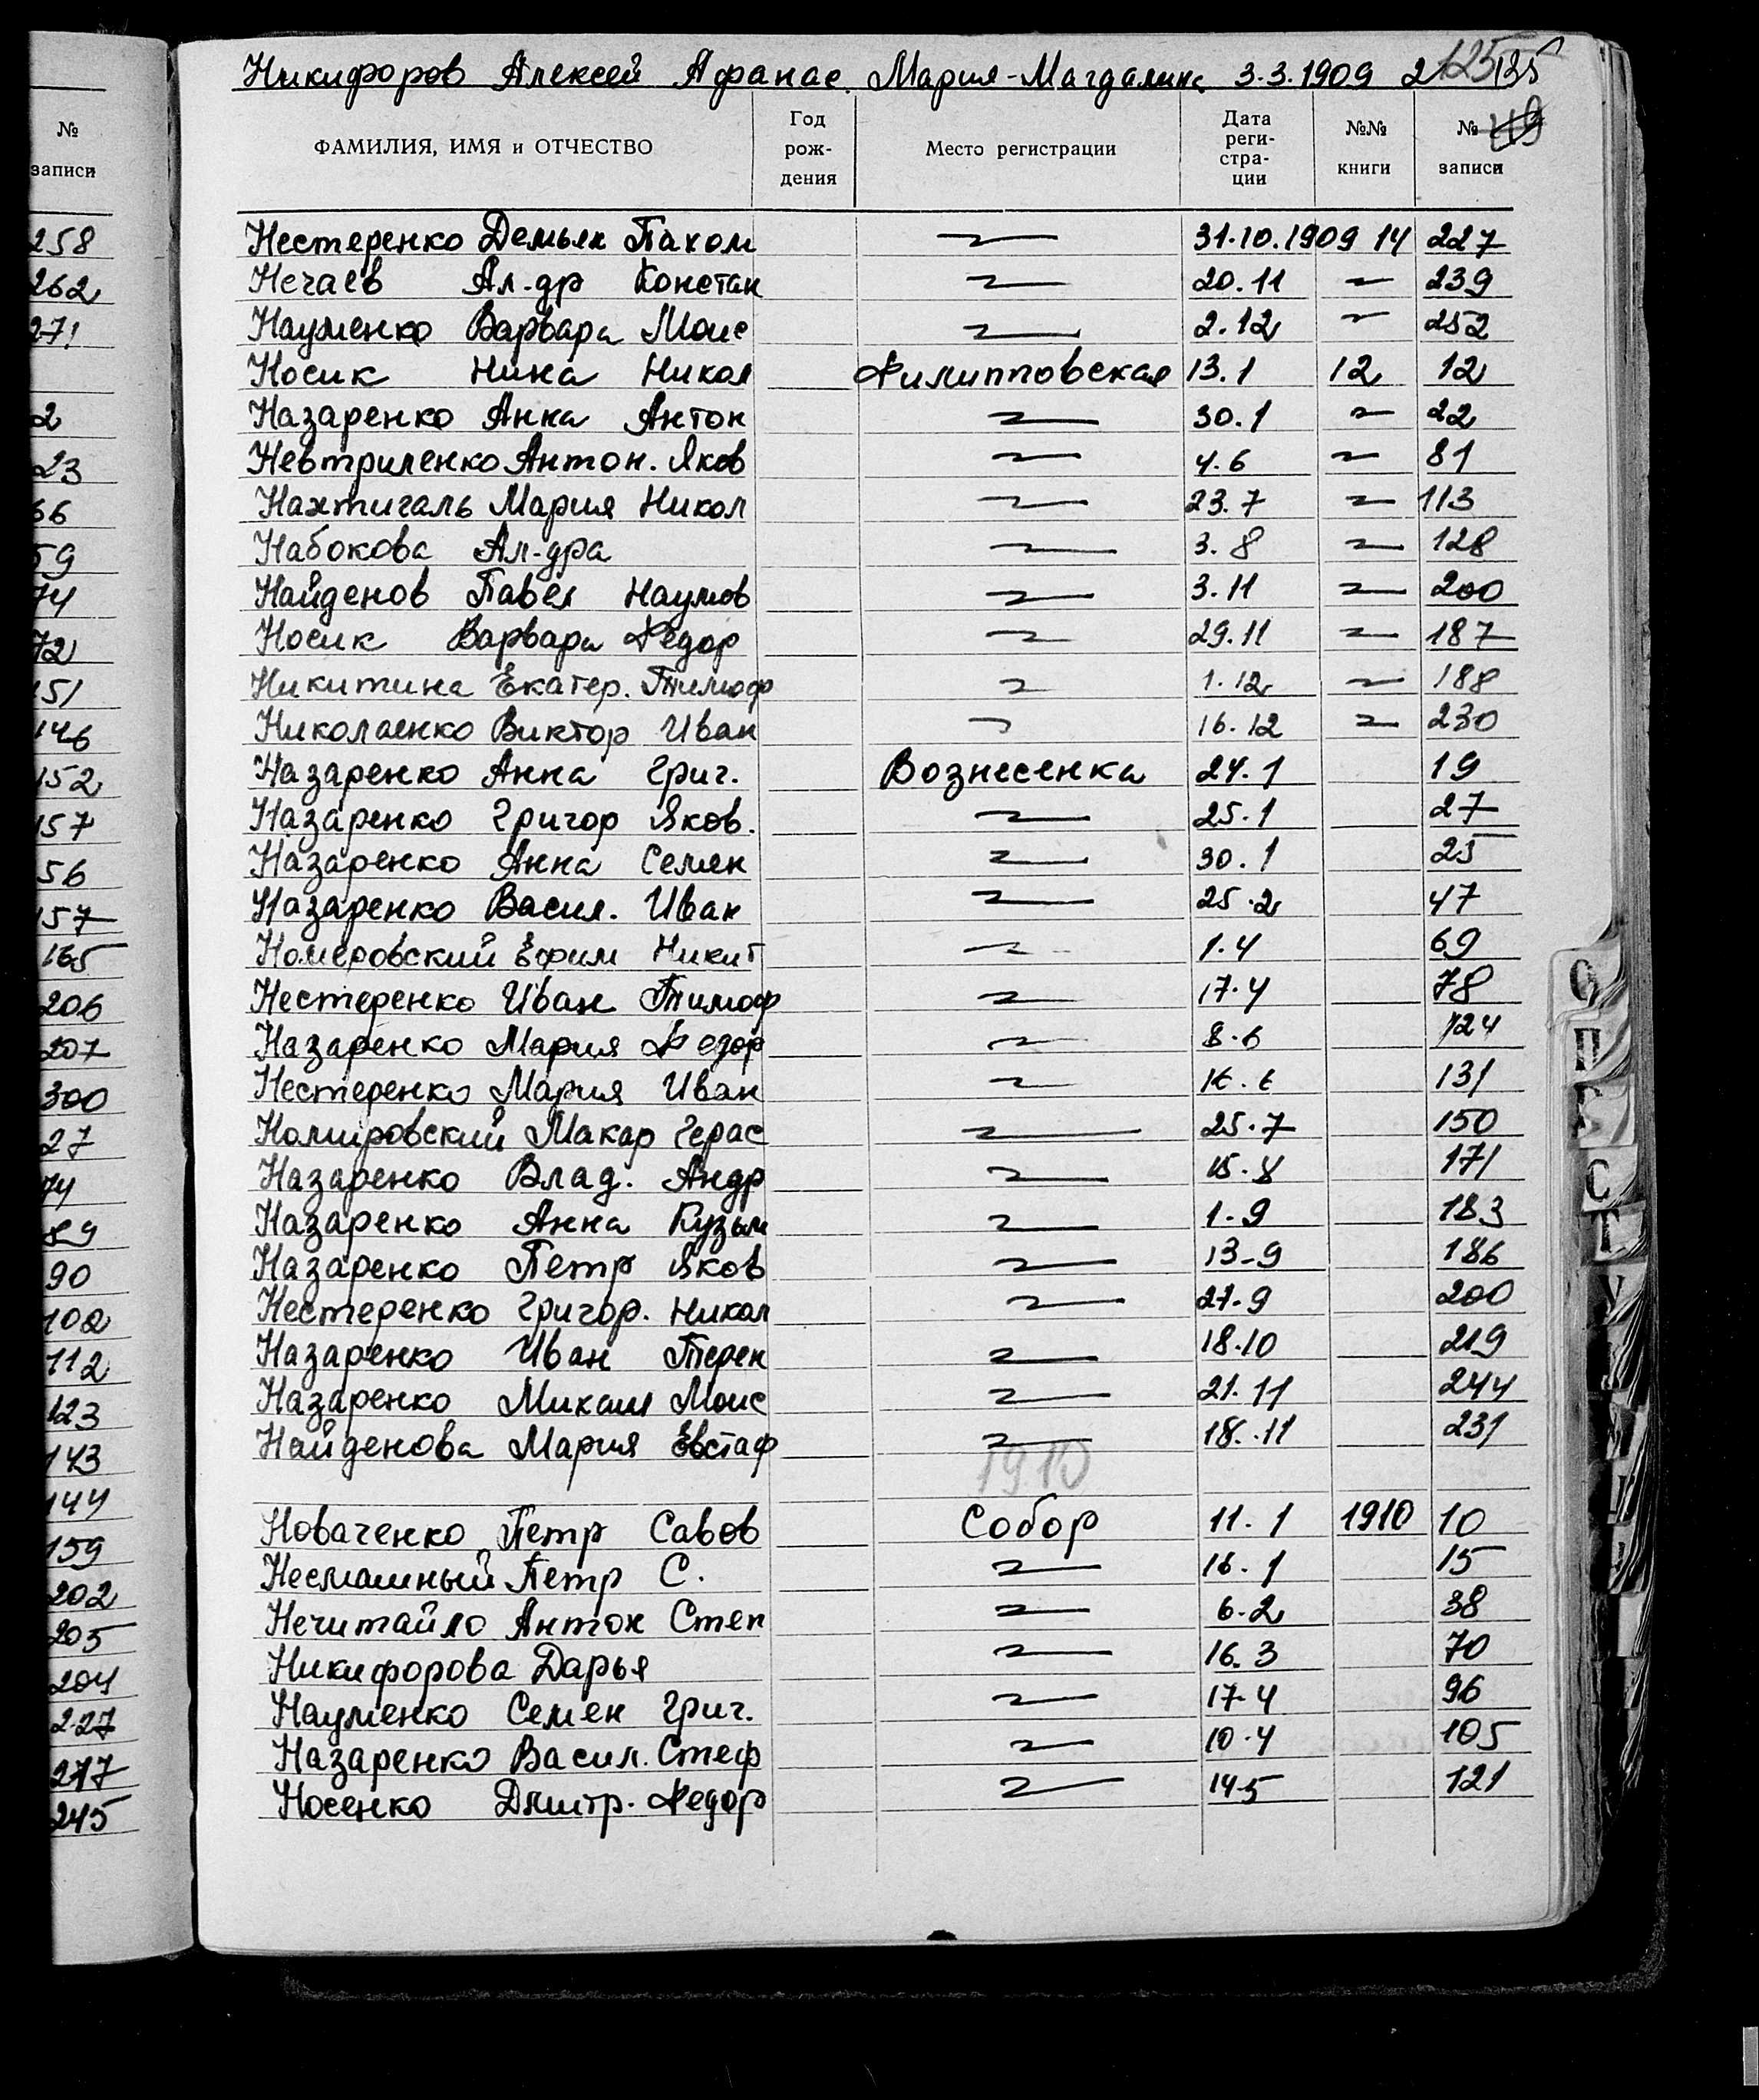 Никифоров Алексей Афанас. Мария-Магдалина 3.3.1909 2 125 135
№ записи
ФАМИЛИЯ, ИМЯ и ОТЧЕСТВО Год рож-дения Место регистрации Дата реги-стра-ции №№ книги № записи
258 Нестеренко Демьян Пахом 〃 31.10.1909 14 227
262 Нечаев Ал-др Констан 〃 20.11 〃 239
271 Науменко Варвара Моис 〃 2.12 〃 252
Носик Нина Никол Филипповская 13.1 12 12
2 Назаренко Анна Антон 〃 30.1 〃 22
23 Невтриленко Антон. Яков 〃 4.6 〃 81
66 Нахтигаль Мария Никол 〃 23.7 〃 113
59 Набокова Ал-дра 〃 3.8 〃 128
74 Найденов Павел Наумов 〃 3.11 〃 200
72 Носик Варвара Федор 〃 29.11 〃 187
151 Никитина Екатер. Тимоф 〃 1.12 〃 188
146 Николаенко Виктор Иван 〃 16.12 〃 230
152 Назаренко Анна Григ. Вознесенка 24.1 19
157 Назаренко Григор Яков. 〃 25.1 27
56 Назаренко Анна Семен 〃 30.1 25
157 Назаренко Васил. Иван 〃 25.2 47
165 Номеровский Ефим Никит 〃 1.4 69
206 Нестеренко Иван Тимоф 〃 17.4 78
207 Назаренко Мария Федор 〃 8.6 124
300 Нестеренко Мария Иван 〃 16.6 131
27 Номировский Макар Герас 〃 25.7 150
74 Назаренко Влад. Андр 〃 15.8 171
89 Назаренко Анна Кузьм 〃 1.9 183
90 Назаренко Петр Яков 〃 13-9 186
102 Нестеренко Григор. Никол 〃 27.9 200
112 Назаренко Иван Терен 〃 18.10 219
123 Назаренко Михаил Моис 〃 21.11 244
143 Найденова Мария Евстаф 〃 18.11 231
144 1910
159 Новаченко Петр Савов Собор 11.1 1910 10
202 Несмашный Петр С. 〃 16.1 15
205 Нечитайло Антон Степ 〃 6.2 38
204 Никифорова Дарья 〃 16.3 70
227 Науменко Семен Григ. 〃 17.4 96
Назаренко Васил. Стеф 〃 10.4 105
245 Носенко Дмитр. Федор 〃 14.5 121
О
П
С
Т
У